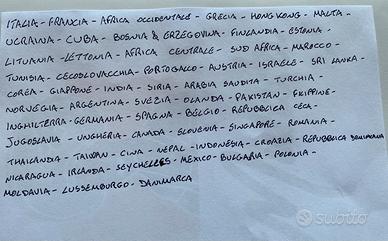 ITALIA - FRANCIA - AFRICA OCCIDENTALE - GRECIA - HONG KONG - MALTA -
UCRAINA - CUBA - BOSNIA & ERZEGOVINA - FINLANDIA - ESTONIA -
LITUANIA - LETTONIA - AFRICA CENTRALE - SUD AFRICA - MAROCCO -
TUNISIA - CECOSLOVACCHIA - PORTOGALLO - AUSTRIA - ISRAELE - SRI LANKA -
COREA - GIAPPONE - INDIA - SIRIA - ARABIA SAUDITA - TURCHIA -
NORVEGIA - ARGENTINA - SVEZIA - OLANDA - PAKISTAN - FILIPPINE -
INGHILTERRA - GERMANIA - SPAGNA - BELGIO - REPUBBLICA CECA -
JUGOSLAVIA - UNGHERIA - CANADA - SLOVENIA - SINGAPORE - ROMANIA -
THAILANDIA - TAIWAN - CINA - NEPAL - INDONESIA - CROAZIA - REPUBBLICA
NICARAGUA - IRLANDA - SEYCHELLES - MEXICO - BULGARIA - POLONIA -
MOLDAVIA - LUSSEMBURGO - DANIMARCA
subito